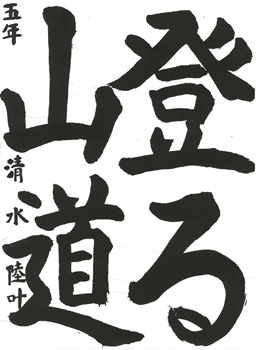 登る
山道
五年 清水陸叶